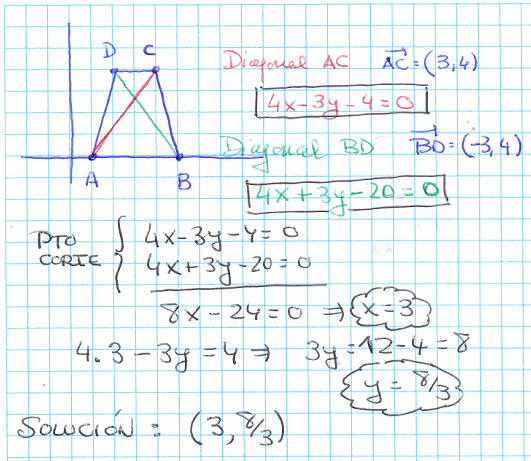 D C
A B
Diagonal AC AC=(3,4)
4x-3y-4=0
Diagonal BD BD=(-3,4)
4x+3y-20=0
PTO CORTE { 4x-3y-4=0
4x+3y-20=0
8x-24=0 ⇒ x=3
4.3-3y=4 ⇒ 3y=12-4=8
y=8/3
SOLUCIÓN: (3, 8/3)